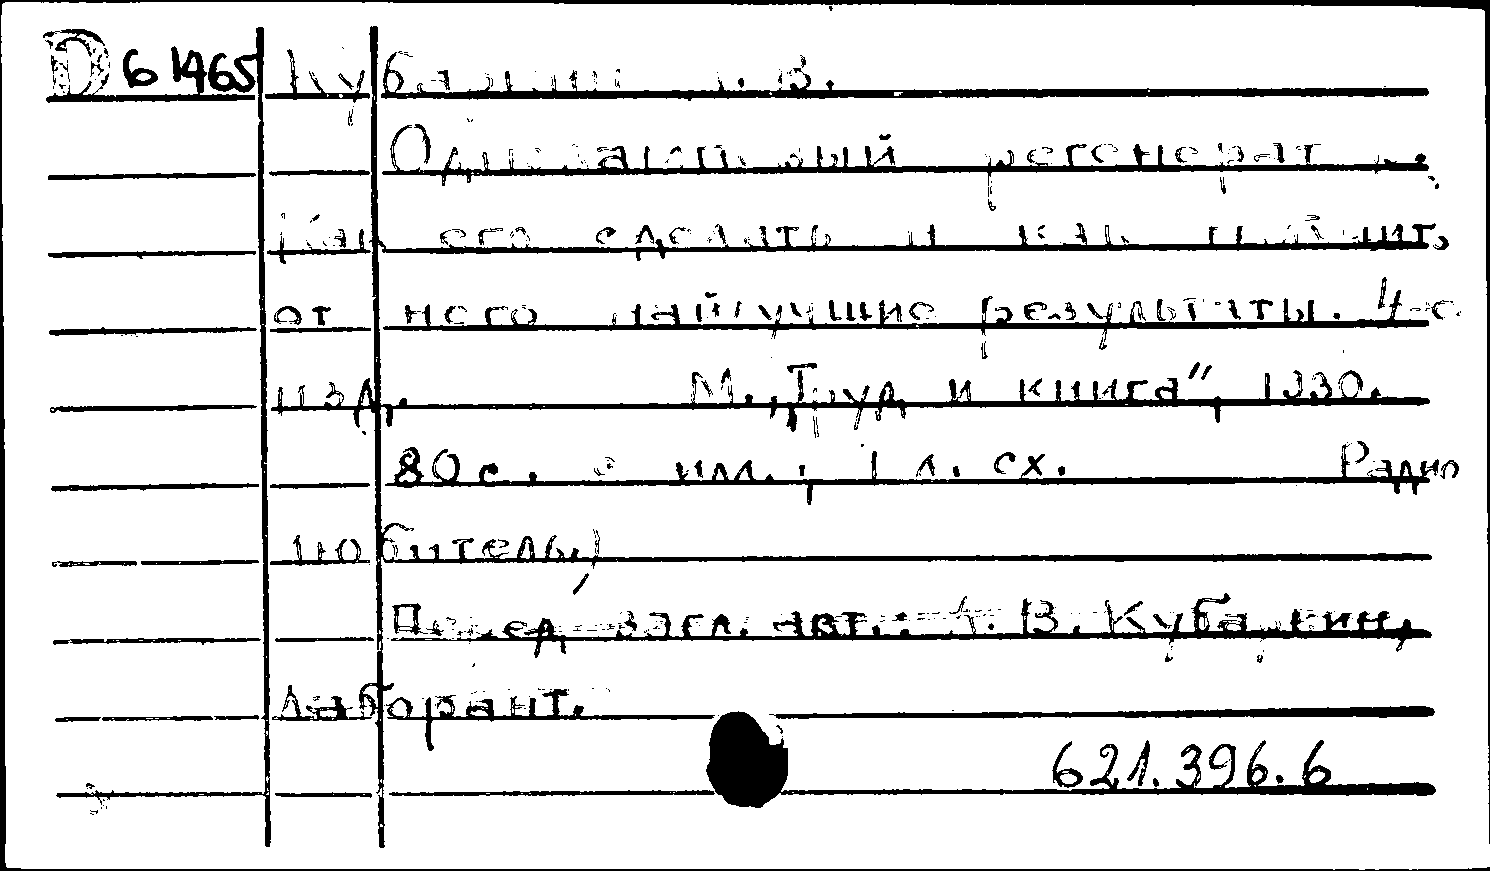 D 61465 Кубаркин Л. В.
Одноламповый регенератор.
Как его сделать и как получить
от него найлучшие результаты. 4-е
изд. М., „Труд и книга”, 1930.
80 с. с ил.; 1 л. сх. Радио
любитель)
Перед загл. авт.: Л. В. Кубаркин,
лаборант.
621.396.6